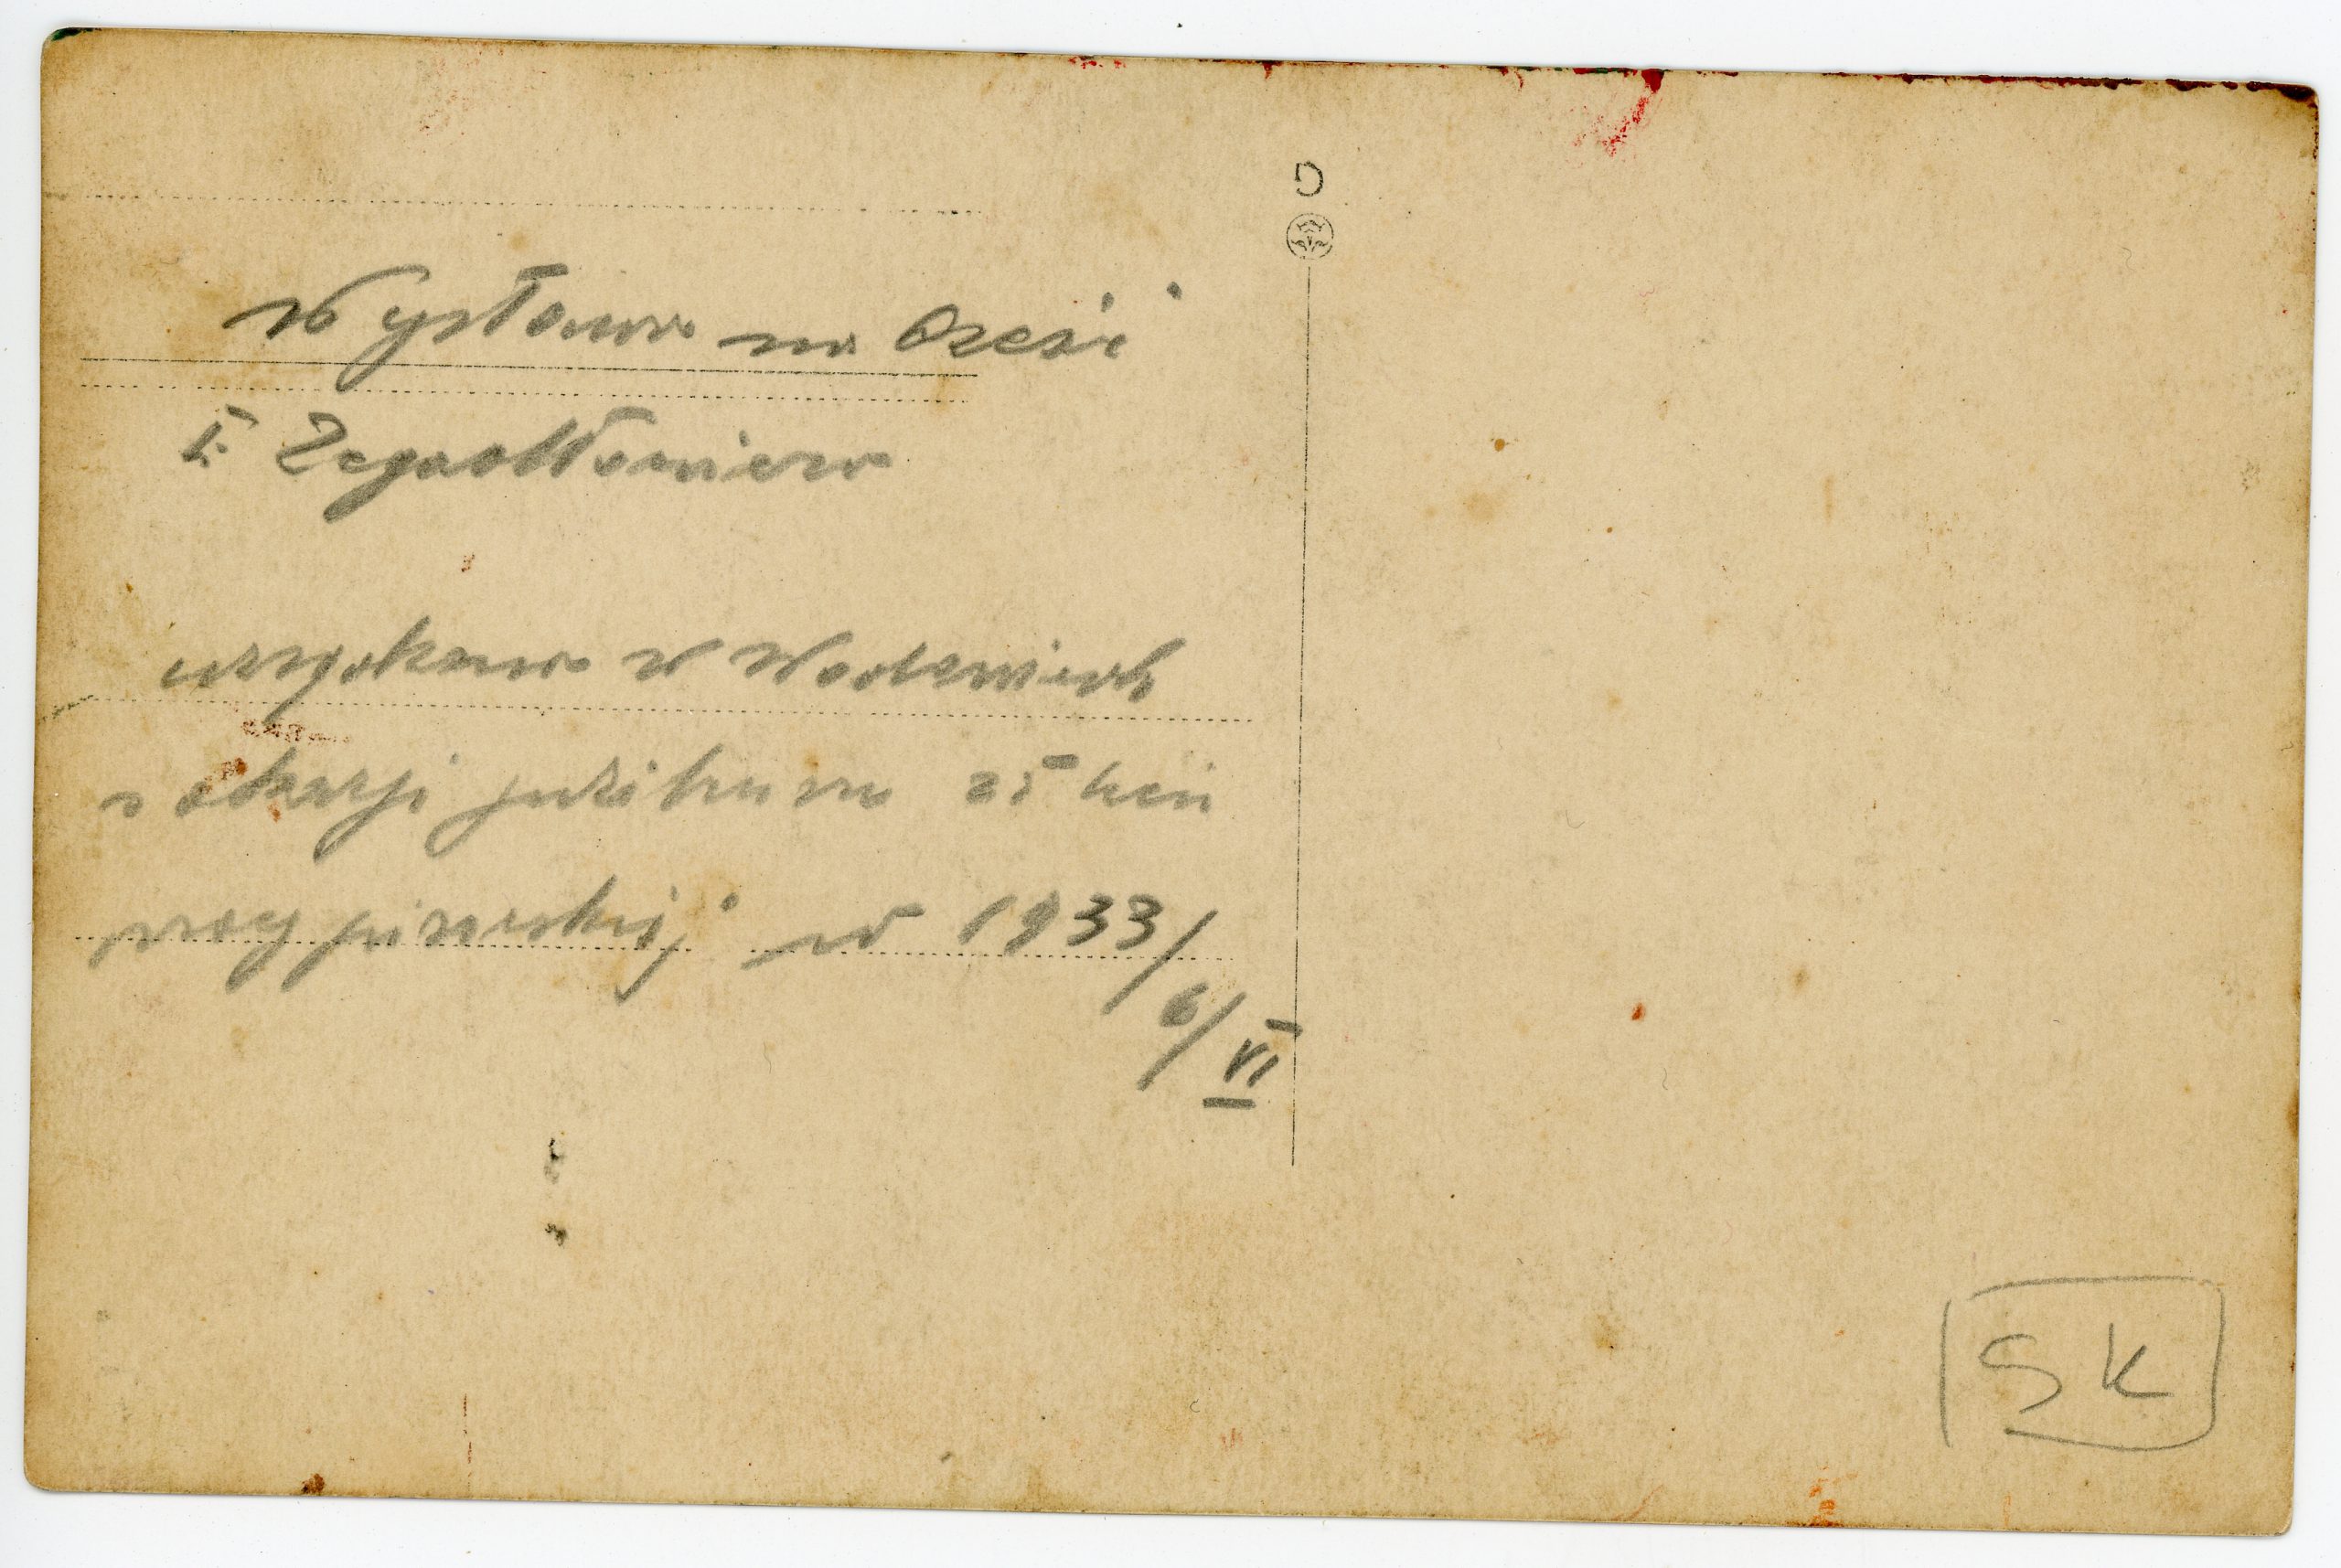 Wystawa na cześć
E. Zegadłowicza
urządzona w Wadowicach
z okazji jubileuszu 25 lecia
pracy pisarskiej w 1933/
6/VI
G
SK